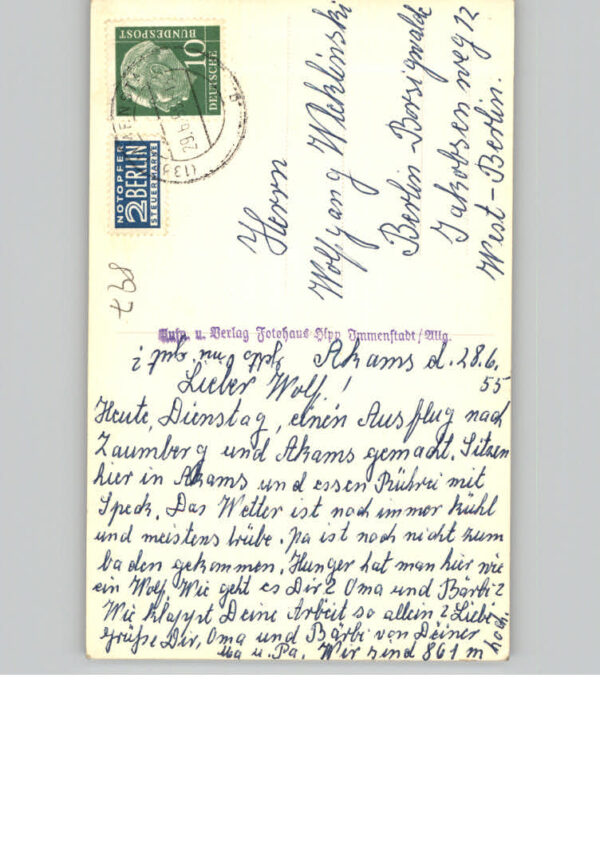 DEUTSCHE
BUNDESPOST
10
29.6
(13b)
NOTOPFER
2 BERLIN
STEUERMARKE
Herrn
Wolfgang Wicklinski
Berlin-Borsigwalde
Jakobsenweg 12
West-Berlin.
Aufn. u. Verlag Fotohaus Hipp Immenstadt/Allg.
Akams d. 28.6.
55
Lieber Wolf!
Heute, Dienstag, einen Ausflug nach
Zaumberg und Akams gemacht. Sitzen
hier in Akams und essen Rührei mit
Speck. Das Wetter ist noch immer kühl
und meistens trübe. Pa ist noch nicht zum
baden gekommen. Hunger hat man hier wie
ein Wolf. Wie geht es Dir? Oma und Bärbi?
Wie klappt Deine Arbeit so allein? Liebe
Grüße Dir, Oma und Bärbi von Deiner
Ma u. Pa. Wir sind 861 m
hoch.